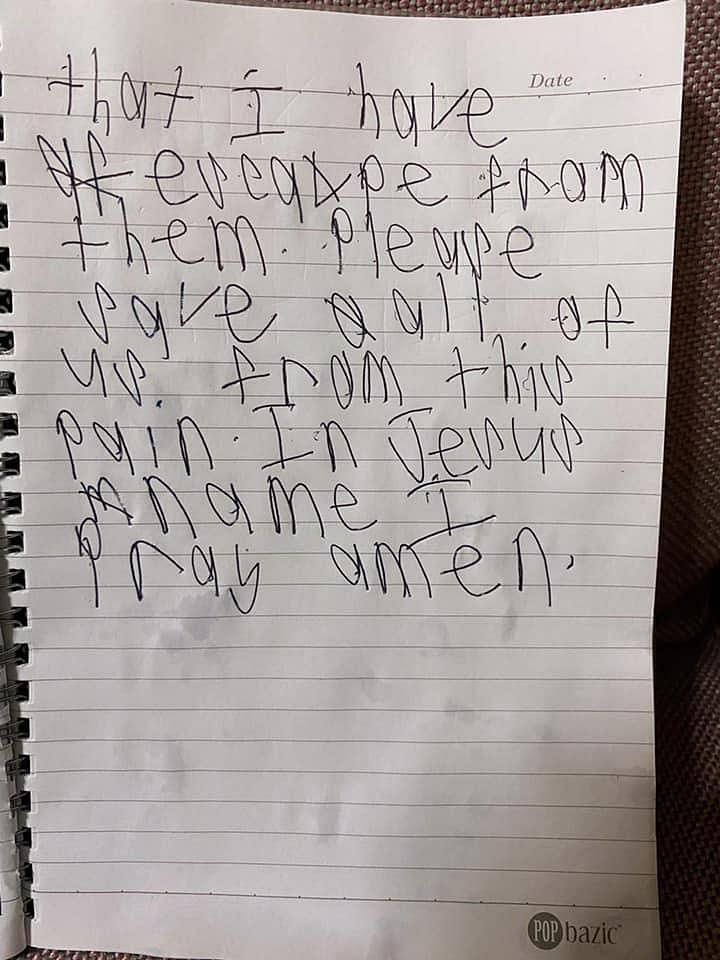 Date
that I have
escape from
them. Please
save all of
us from this
pain. In Jesus
name I
Pray amen.
POP bazic